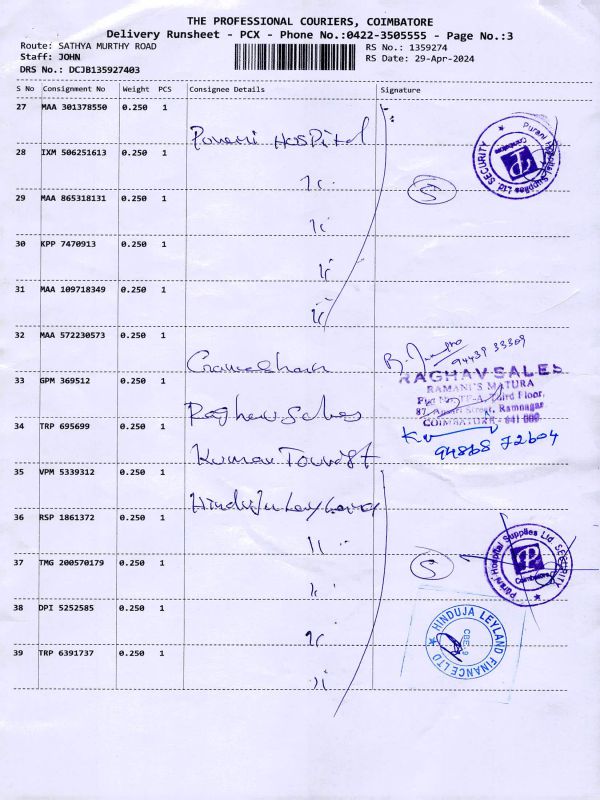 THE PROFESSIONAL COURIERS, COIMBATORE
Delivery Runsheet - PCX - Phone No.:0422-3505555 - Page No.:3
Route: SATHYA MURTHY ROAD
RS No.: 1359274
Staff: JOHN
RS Date: 29-Apr-2024
DRS No.: DCJB135927403
S No Consignment No Weight PCS Consignee Details Signature
27 MAA 301378550 0.250 1
Hospital
28 IXM 506251613 0.250 1
29 MAA 865318131 0.250 1
5
30 KPP 7470913 0.250 1
31 MAA 109718349 0.250 1
32 MAA 572230573 0.250 1
94439 33309
33 GPM 369512 0.250 1
Raghav Sales
RAGHAV SALES
RAMANI'S MATURA
Third Floor,
87, Street, Ramnagar
COIMBATORE - 641 009
34 TRP 695699 0.250 1
Kumar Tourist
94868 72604
35 VPM 5339312 0.250 1
Hinduja Leyland
36 RSP 1861372 0.250 1
37 TMG 200570179 0.250 1
5
Purani Hospital Supplies Ltd. SECURITY
Coimbatore
38 DPI 5252585 0.250 1
HINDUJA LEYLAND FINANCE LTD
CBE-9
39 TRP 6391737 0.250 1
Purani Hospital Supplies Ltd. SECURITY
Coimbatore